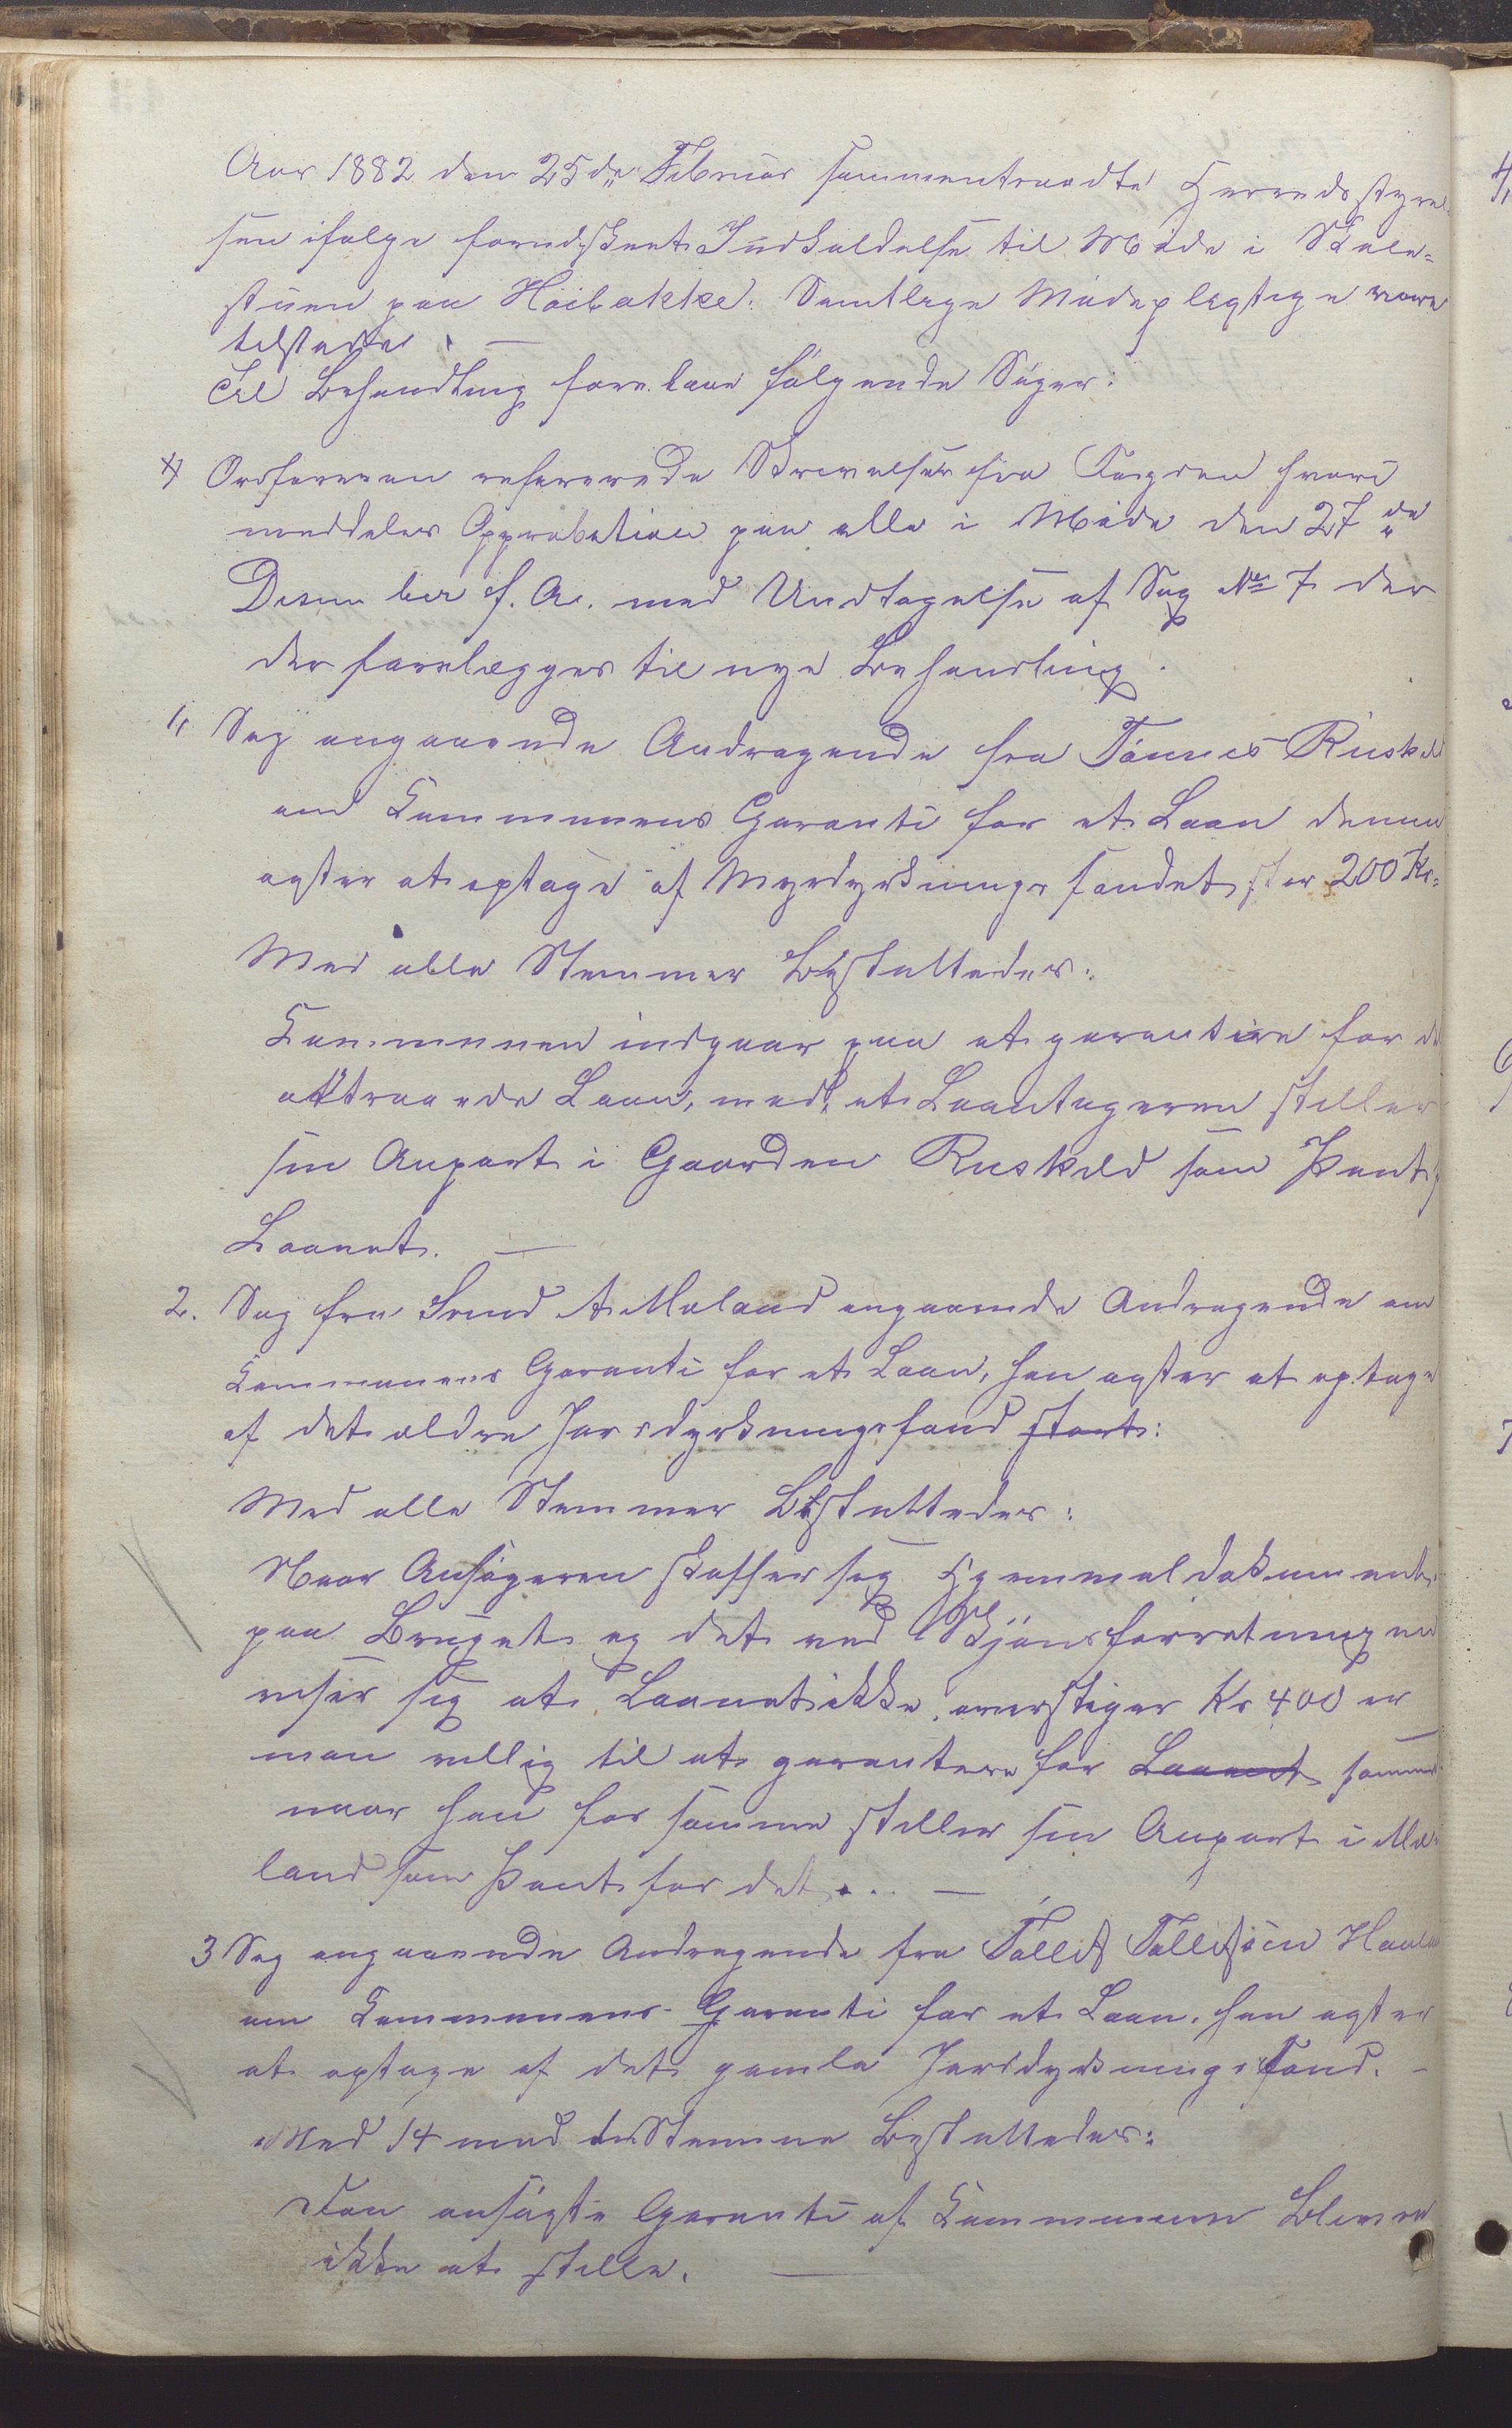 Aar 1882 den 25de Februar sammentraadte Herredsstyrel-
sen ifølge forudskeet Indkaldelse til Møde i Skole-
stuen paa Höibakke. Samtlige Mødepligtige vare
tilstæde. —
Til Behandling forelaae følgende Sager:
X) Ordføreren refererede Skrivelser fra Fogden hvori
meddeles Approbation paa alle i Møde den 27de
Desember f. A. med Undtagelse af Sag № 7 der
der forelægges til nye Behandling.
1, Sag angaaende Andragende fra Tönnes Ruskeld
om Kommunens Garanti for et Laan denne
agter at optage af Myrdyrkningsfondet stor 200 Kr.
Med alle Stemmer Besluttedes:
Kommunen indgaar paa at garantiere for de
attraaede Laan, mod at Laantageren stiller
sin Anpart i Gaarden Ruskeld som Pant f
Laanet. —
2. Sag fra Svend A. Meland angaaende Andragende om
Kommunens Garanti for et Laan, han agter at optage
af det ældre Jorddyrkningsfond stort:
Med alle Stemmer Besluttedes:
Naar Ansøgeren skaffer sig Hjemmeldokument
paa Bruget og det ved Skjønsforretningen
viser sig at Laanet ikke overstiger Kr 400 er
man villig til at garantere for Laanet samme
naar han for samme stiller sin Anpart i Me-
land som Pant for det. . —
3 Sag angaaende Andragende fra Tollef Tollefsen Haala
om Kommunens Garanti for et Laan, han agter
at optage af det gamle Jorddyrknings Fond. –
Med 14 mod en Stemme Besluttedes:
Den ansøgte Garanti af Kommunen Blever
ikke at stille. —